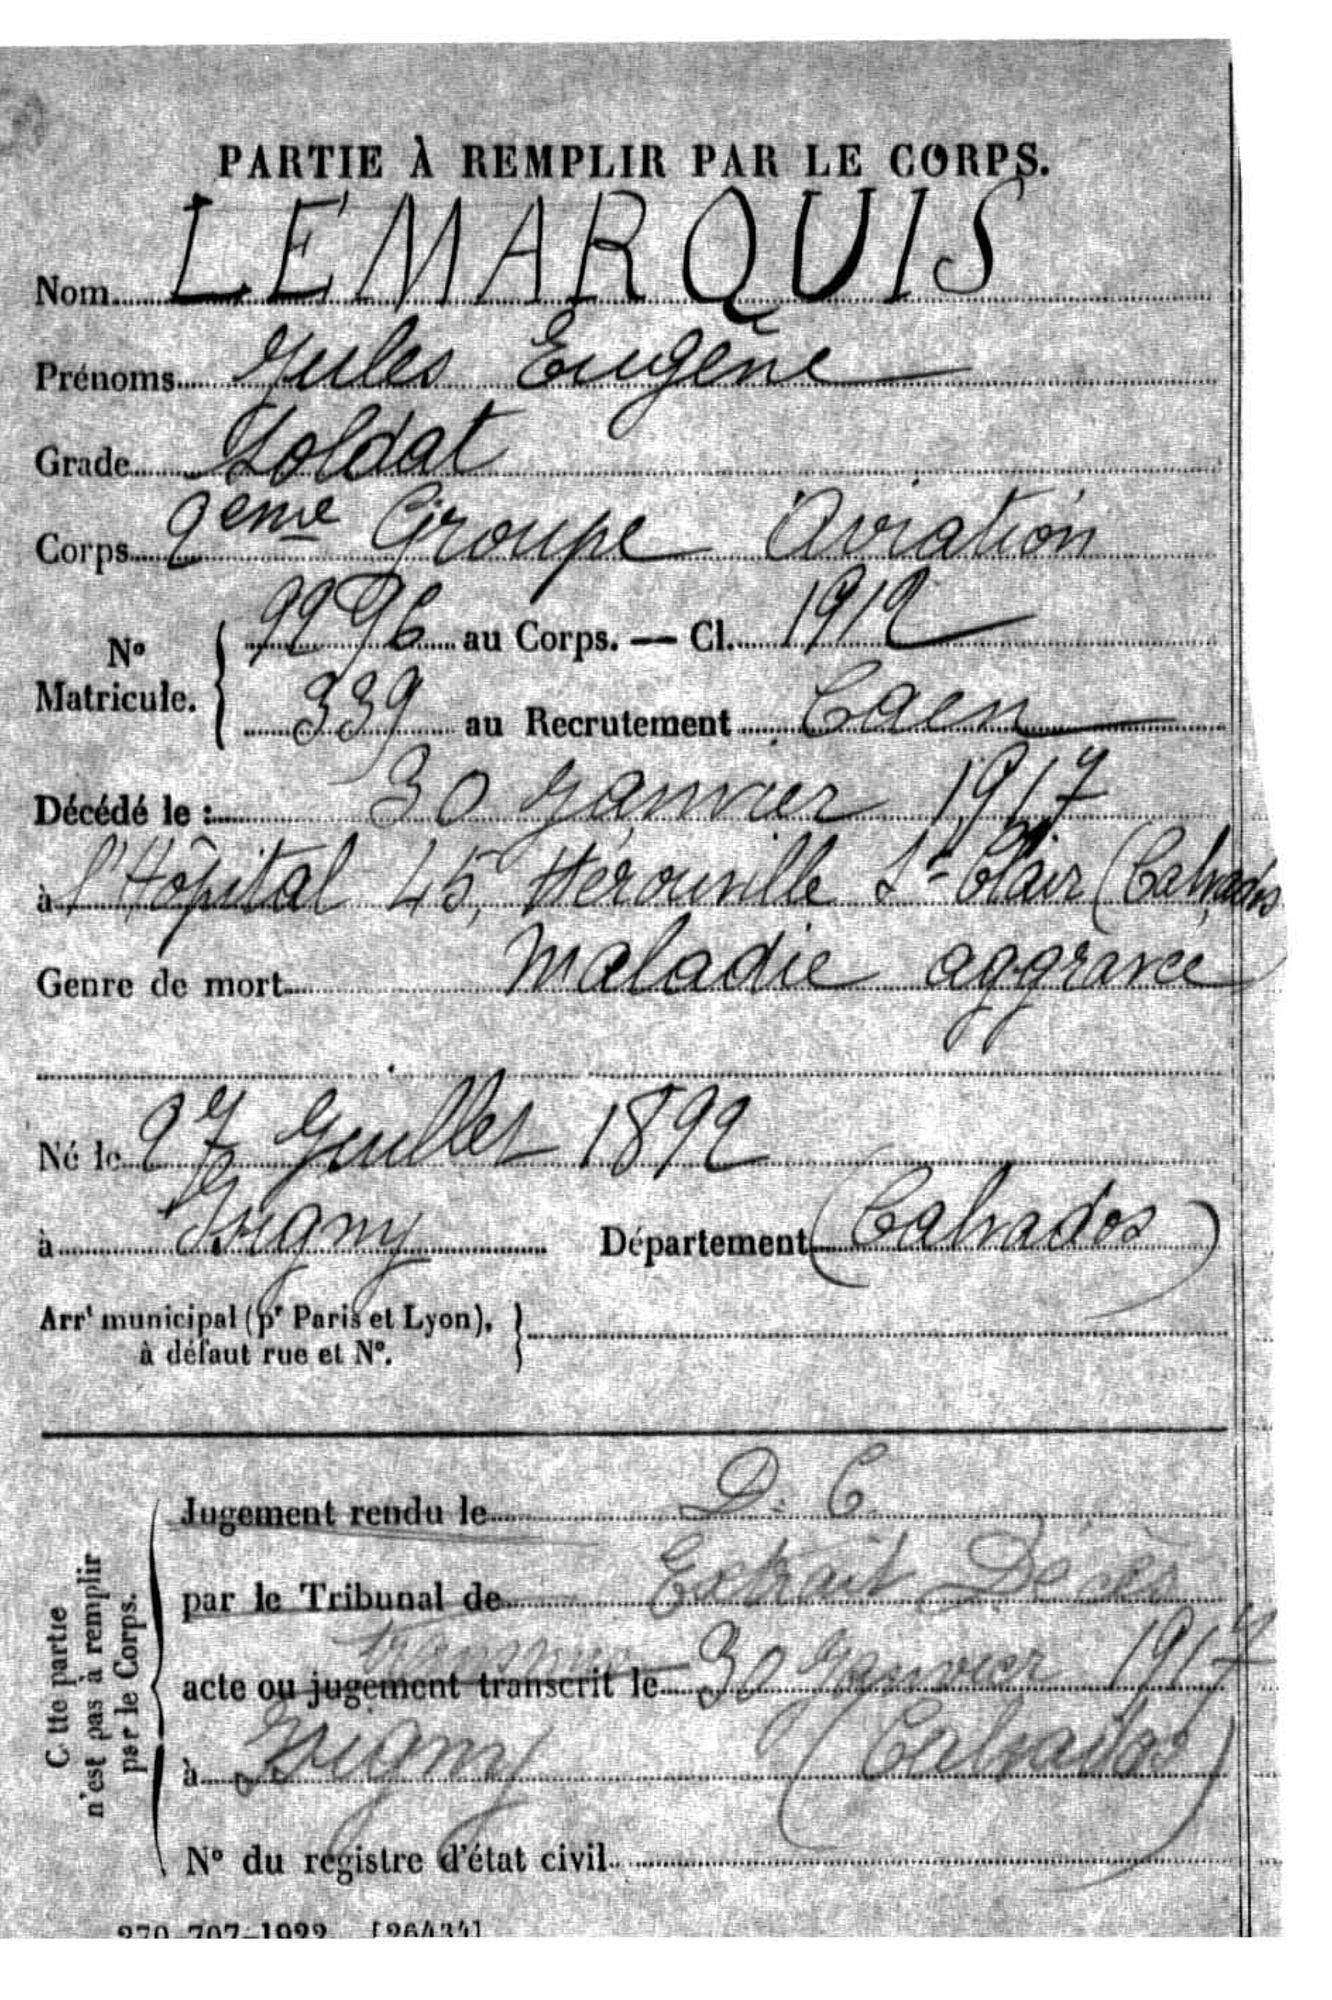 PARTIE À REMPLIR PAR LE CORPS.
Nom LEMARQUIS
Prénoms Jules Eugène
Grade Soldat
Corps 2ème Groupe Aviation
Nº Matricule. 9996 au Corps. — Cl. 1912
339 au Recrutement Caen
Décédé le : 30 Janvier 1917
à l'Hôpital 45, Hérouville St-Clair (Calvados
Genre de mort maladie aggravée
Né le 27 Juillet 1892
à Isigny Département (Calvados)
Arrt municipal (pr Paris et Lyon),
à défaut rue et Nº.
Cette partie
n'est pas à remplir
par le Corps.
Jugement rendu le D. C.
par le Tribunal de Extrait Décès
transmis
acte ou jugement transcrit le 30 Janvier 1917
à Isigny (Calvados)
Nº du registre d'état civil
270-707-1922. [26434]